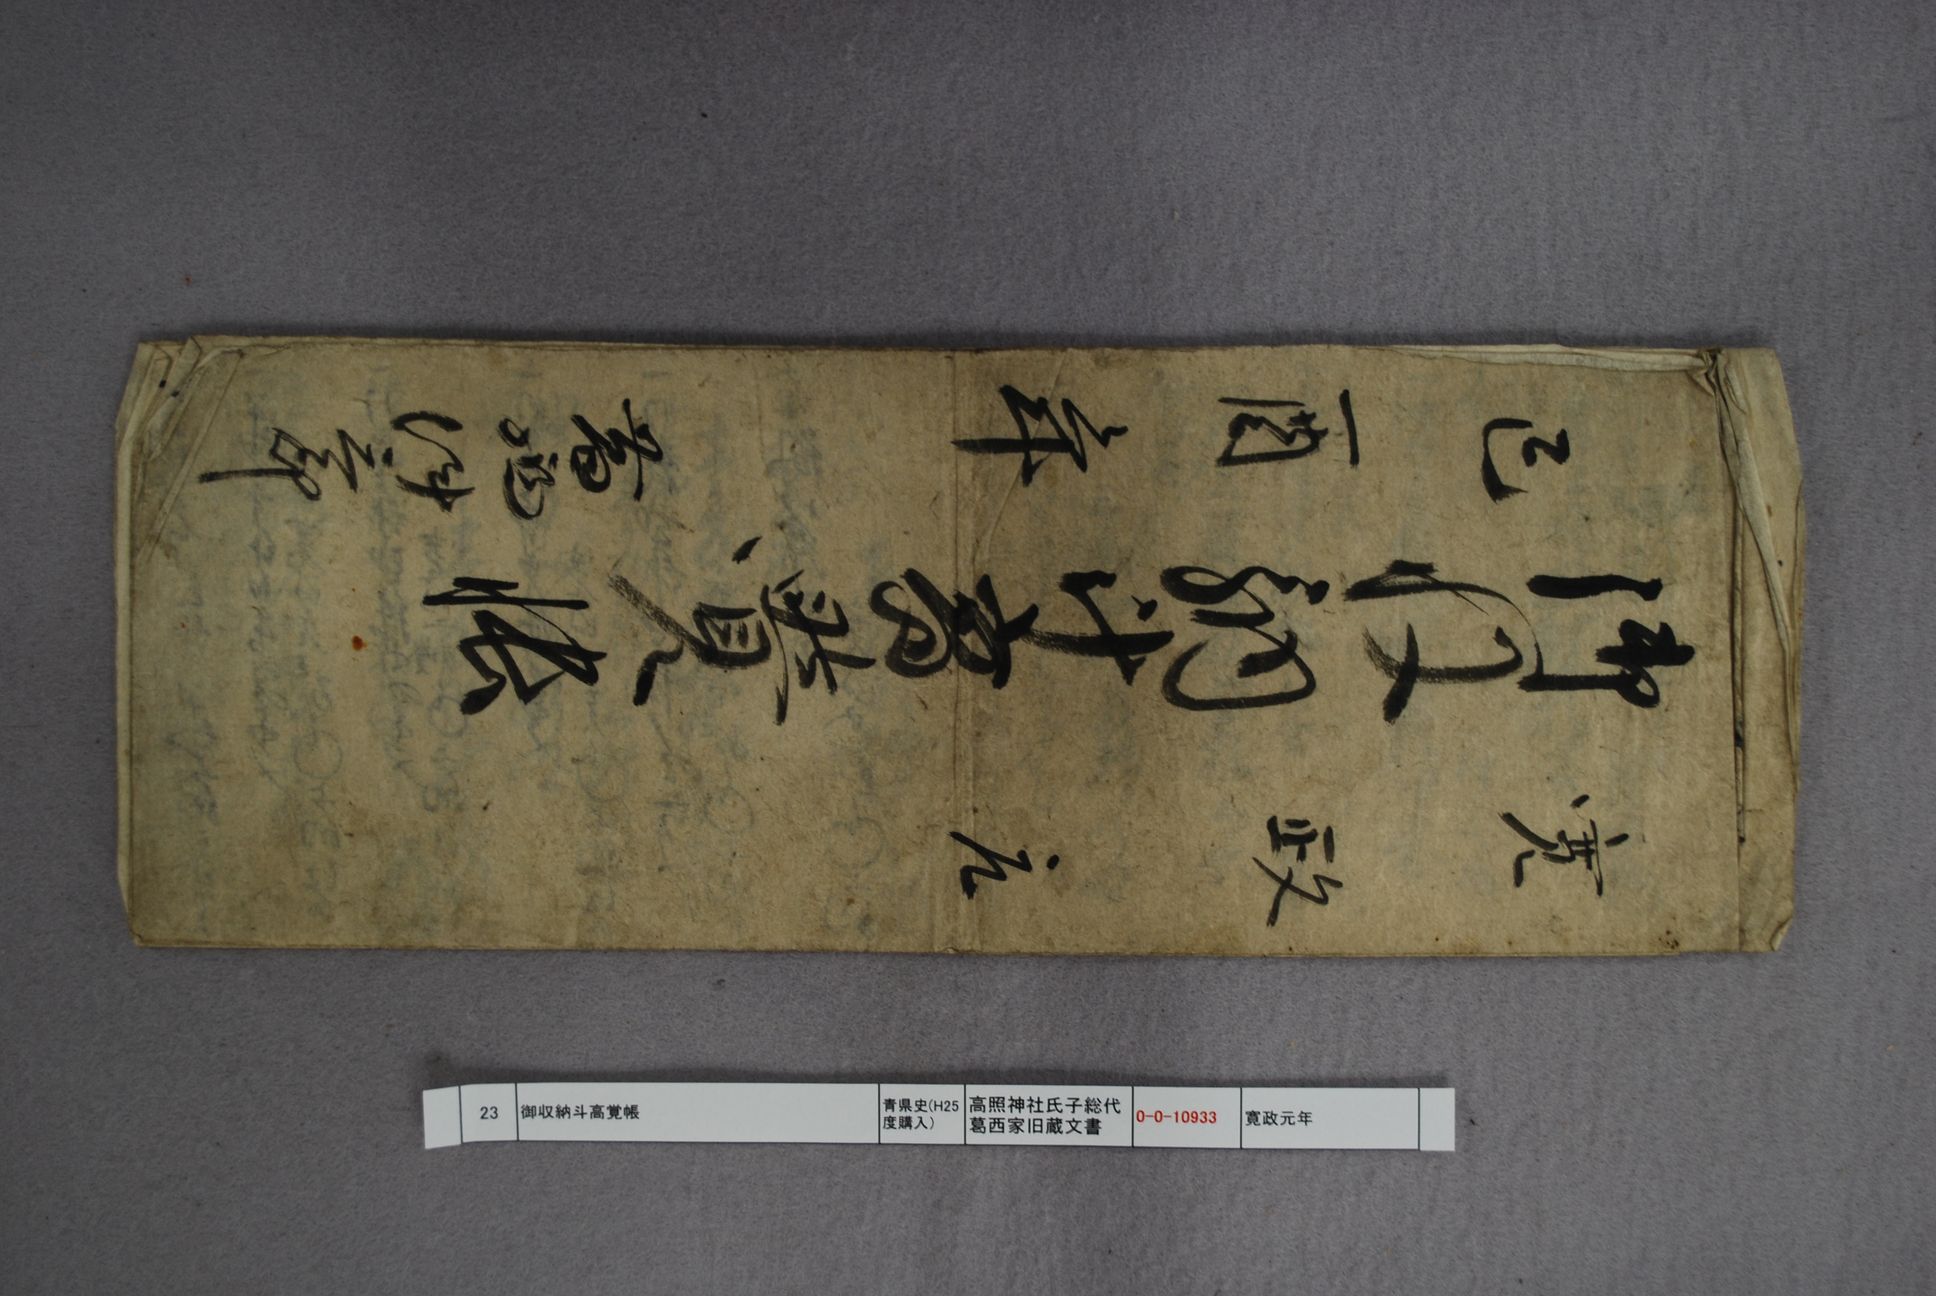 寛政元
御収納斗高覺帳
己酉年
23
御収納斗高覚帳
青県史(H25
度購入)
高照神社氏子総代
葛西家旧蔵文書
0-0-10933
寛政元年